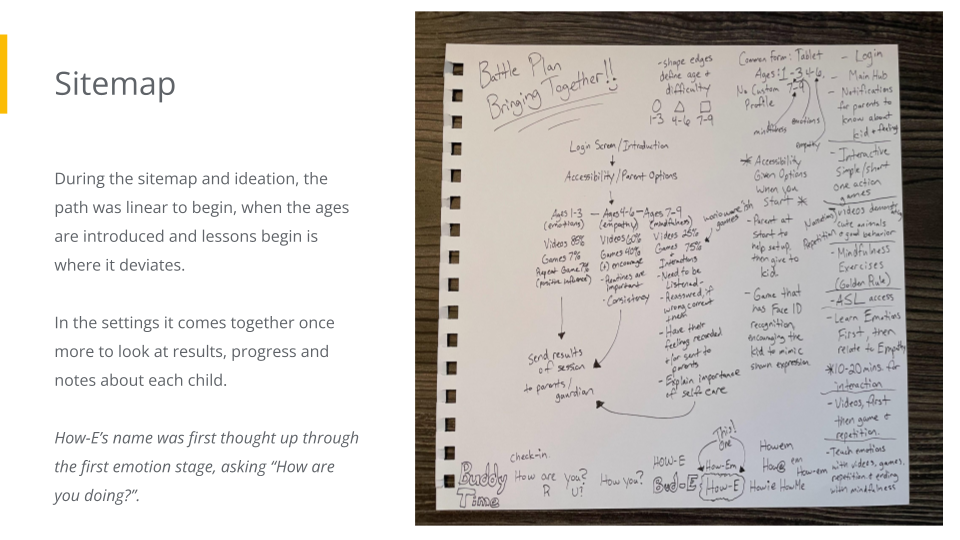 Sitemap
During the sitemap and ideation, the
path was linear to begin, when the ages
are introduced and lessons begin is
where it deviates.
In the settings it comes together once
more to look at results, progress and
notes about each child.
How-E’s name was first thought up through
the first emotion stage, asking “How are
you doing?”.
Battle Plan
Bringing Together!!
-shape edges
define age +
difficulty
1-3 4-6 7-9
Common Form: Tablet
Ages: 1-3 4-6
7-9
No Custom
Profile
mindfulness
emotions
empathy
Login Screen/Introduction
Accessibility/Parent Options
Ages 1-3
(emotions)
Videos
Games 7%
Repeat Game 7%
(positive influence)
Ages 4-6
(empathy)
Videos 60%
Games 40%
(+) encourage
-Routines are
important
·Consistency
Ages 7-9
(mindfulness)
Videos 25%
Games 75%
games
Interactions
-Need to be
Listened
-Reassured, if
wrong correct
them
-Have their
feelings recorded
+/or sent to
parents
-Explain importance
of self care
Send results
of session
to parents/
guardian
* Accessibility
Given Options
When you
Start *
-Parent at
Start to
help setup,
then give to
kid
-Game that
has Face ID
recognition,
encouraging the
kid to mimic
shown expression
- Login
- Main Hub
- Notifications
for parents to
know about
kid + feeling
-Interactive
Simple/short
one action
games
videos
cute animals
+ good behavior
Repetition
-Mindfulness
Exercises
(Golden Rule)
-ASL access
-Learn Emotions
First, then
relate to Empathy
*10-20 mins. for
interaction
-Videos, first
then game +
repetition.
-Teach emotions
with videos, games,
repetition + ending
with mindfulness
check-in.
Buddy
Time
How are you?
R U?
How you?
HOW-E
Bud-E
This!
One
How-Em
How-E
Howem
How@em
How-em
Howie HowMe